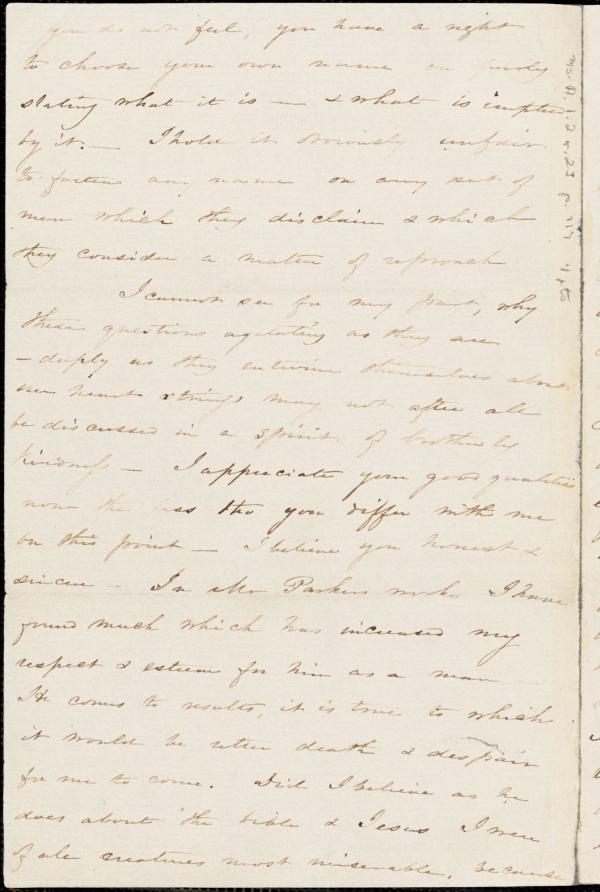 you do not feel, you have a right
to choose your own name on
stating what it is — & what is implied
by it. — I hold it obviously unfair
to fasten any name on any set of
men which they disclaim & which
they consider a matter of reproach
I cannot see for my part, why
these questions agitating as they are
— deeply as they entwine themselves about
our heart strings may not after all
be discussed in a spirit of brotherly
kindness — I appreciate your good qualities
none the less tho you differ with me
on this point — I believe you honest &
sincere — In Mr Parkers works I have
found much which has increased my
respect & esteem for him as a man —
He comes to results, it is true to which
it would be utter death & despair
for me to come. Did I believe as he
does about the bible & Jesus I were
of all creatures most miserable, because
Ms.A.1.2 v.23 p.